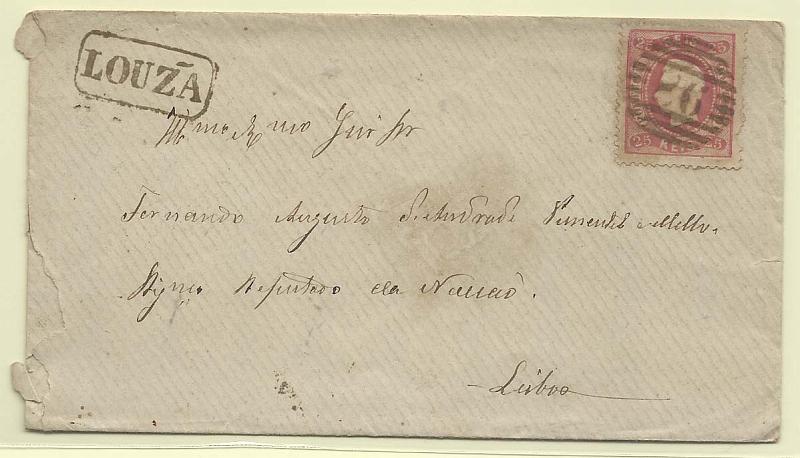 LOUZÃ
25 25
76
25 REIS 25
Illmo e Exmo Snr
Fernando Augusto d'Andrade Pimentel e Mello.
Digmo Deputado da Nacaõ.
Lisboa